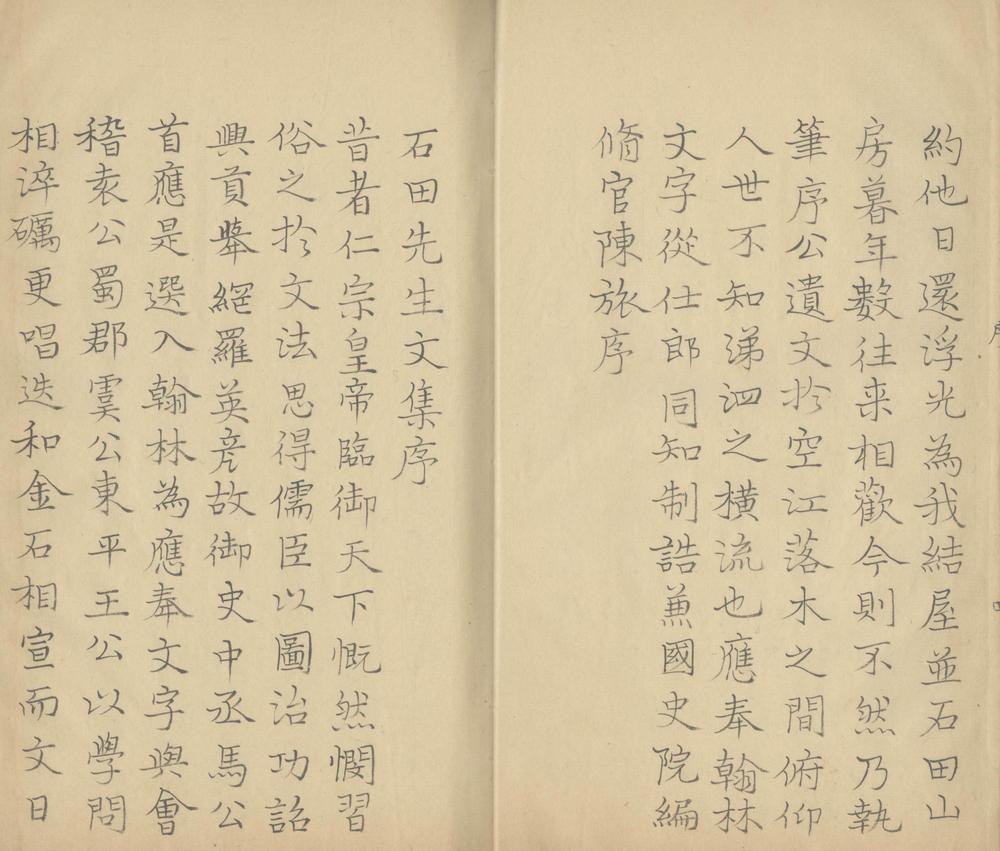 約他日還浮光為我結屋並石田山
房暮年數往来相歡今則不然乃執
筆序公遺文於空江落木之間俯仰
人世不知涕泗之橫流也應奉翰林
文字從仕郎同知制誥蕭國史院編
脩官陳旅序
石田先生文集序
昔者仁宗皇帝臨御天下慨然憫習
俗之於文法思得儒臣以圖治功詔
興貢舉網羅英彥故御史中丞馬公
首應是選入翰林為應奉文字與會
稽袁公蜀郡虞公東平王公以學問
相淬礪更唱迭和金石相宣而文日